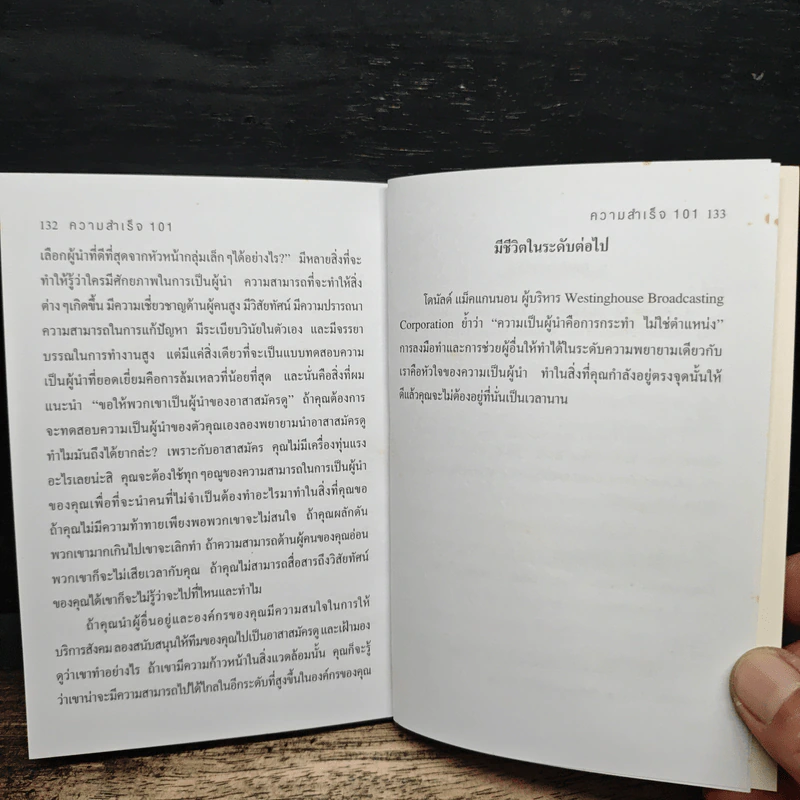 132 ความสำเร็จ 101
เลือกผู้นำที่ดีที่สุดจากหัวหน้ากลุ่มเล็กๆได้อย่างไร?” มีหลายสิ่งที่จะ
ทำให้รู้ว่าใครมีศักยภาพในการเป็นผู้นำ ความสามารถที่จะทำให้สิ่ง
ต่างๆเกิดขึ้น มีความเชี่ยวชาญด้านผู้คนสูง มีวิสัยทัศน์ มีความปรารถนา
ความสามารถในการแก้ปัญหา มีระเบียบวินัยในตัวเอง และมีจรรยา
บรรณในการทำงานสูง แต่มีแค่สิ่งเดียวที่จะเป็นแบบทดสอบความ
เป็นผู้นำที่ยอดเยี่ยมคือการล้มเหลวที่น้อยที่สุด และนั่นคือสิ่งที่ผม
แนะนำ “ขอให้พวกเขาเป็นผู้นำของอาสาสมัครดู” ถ้าคุณต้องการ
จะทดสอบความเป็นผู้นำของตัวคุณเองลองพยายามนำอาสาสมัครดู
ทำไมมันถึงได้ยากล่ะ? เพราะกับอาสาสมัคร คุณไม่มีเครื่องทุ่นแรง
อะไรเลยน่ะสิ คุณจะต้องใช้ทุกๆอณูของความสามารถในการเป็นผู้นำ
ของคุณเพื่อที่จะนำคนที่ไม่จำเป็นต้องทำอะไรมาทำในสิ่งที่คุณขอ
ถ้าคุณไม่มีความท้าทายเพียงพอพวกเขาจะไม่สนใจ ถ้าคุณผลักดัน
พวกเขามากเกินไปเขาจะเลิกทำ ถ้าความสามารถด้านผู้คนของคุณอ่อน
พวกเขาก็จะไม่เสียเวลากับคุณ ถ้าคุณไม่สามารถสื่อสารถึงวิสัยทัศน์
ของคุณได้เขาก็จะไม่รู้ว่าจะไปที่ไหนและทำไม
ถ้าคุณนำผู้อื่นอยู่และองค์กรของคุณมีความสนใจในการให้
บริการสังคม ลองสนับสนุนให้ทีมของคุณไปเป็นอาสาสมัครดู และเฝ้ามอง
ดูว่าเขาทำอย่างไร ถ้าเขามีความก้าวหน้าในสิ่งแวดล้อมนั้น คุณก็จะรู้
ว่าเขาน่าจะมีความสามารถไปได้ไกลในอีกระดับที่สูงขึ้นในองค์กรของคุณ
ความสำเร็จ 101 133
มีชีวิตในระดับต่อไป
โดนัลด์ แม็คแกนนอน ผู้บริหาร Westinghouse Broadcasting
Corporation ย้ำว่า “ความเป็นผู้นำคือการกระทำ ไม่ใช่ตำแหน่ง”
การลงมือทำและการช่วยผู้อื่นให้ทำได้ในระดับความพยายามเดียวกับ
เราคือหัวใจของความเป็นผู้นำ ทำในสิ่งที่คุณกำลังอยู่ตรงจุดนั้นให้
ดีแล้วคุณจะไม่ต้องอยู่ที่นั่นเป็นเวลานาน